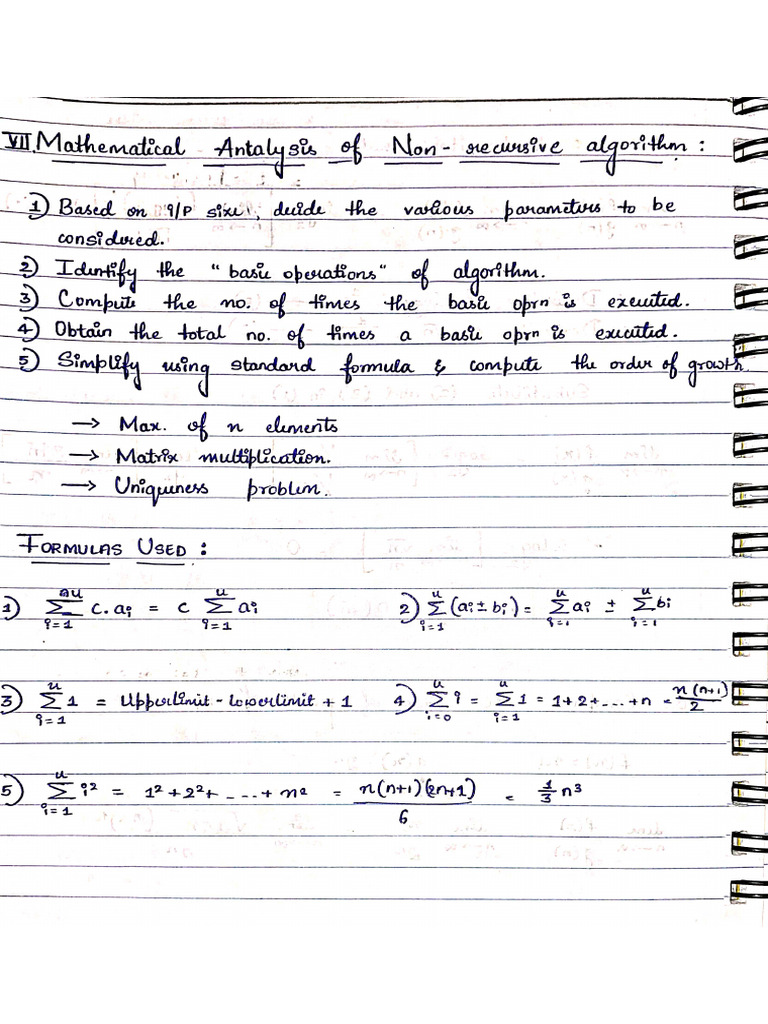 VII. Mathematical Antalysis of Non-recursive algorithm :
1) Based on i/p size, decide the various parameters to be
considered.
2) Identify the "basic operations" of algorithm.
3) Compute the no. of times the basic oprn is executed.
4) Obtain the total no. of times a basic oprn is executed.
5) Simplify using standard formula & compute the order of growth
→ Max. of n elements
→ Matrix multiplication.
→ Uniqueness problem.
FORMULAS USED :
1) u∑i=1 c.ai = c u∑i=1 ai 2) u∑i=1 (ai ± bi) = u∑i=1 ai ± u∑i=1 bi
3) u∑i=1 1 = Upperlimit - lowerlimit + 1 4) u∑i=0 i = u∑i=1 1 = 1+2+...+n = n(n+1)/2
5) u∑i=1 i² = 1²+2²+ - ...+ n² = n(n+1)(2n+1)/6 = 1/3 n³